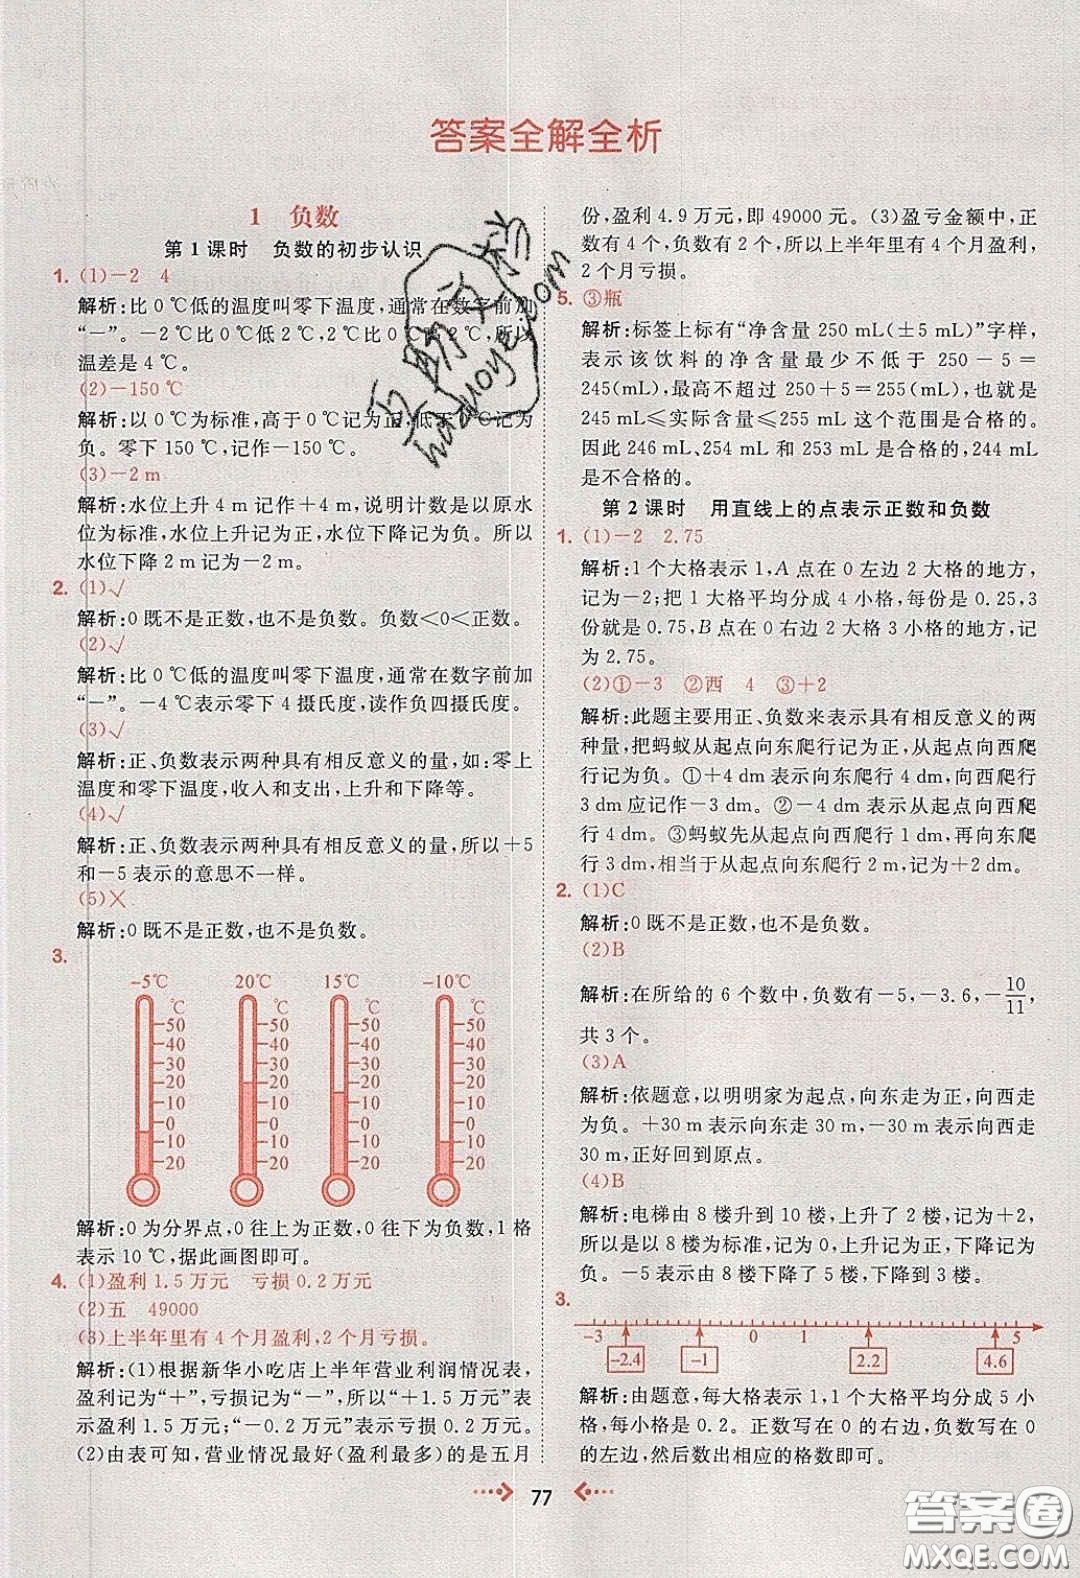 答案全解全析
1 负数
第1课时 负数的初步认识
1. (1)-2 4
解析:比0℃低的温度叫零下温度,通常在数字前加
“-”。-2℃比0℃低2℃,2℃比0℃高2℃,所以
温差是4℃。
(2)-150℃
解析:以0℃为标准,高于0℃记为正,低于0℃记为
负。零下150℃,记作-150℃。
(3)-2m
解析:水位上升4m记作+4m,说明计数是以原水
位为标准,水位上升记为正,水位下降记为负。所以
水位下降2m记为-2m。
2. (1)√
解析:0既不是正数,也不是负数。负数<0<正数。
(2)√
解析:比0℃低的温度叫零下温度,通常在数字前加
“-”。-4℃表示零下4摄氏度,读作负四摄氏度。
(3)√
解析:正、负数表示两种具有相反意义的量,如:零上
温度和零下温度,收入和支出,上升和下降等。
(4)√
解析:正、负数表示两种具有相反意义的量,所以+5
和-5表示的意思不一样。
(5)×
解析:0既不是正数,也不是负数。
3.
-5℃ 20℃ 15℃ -10℃
℃ ℃ ℃ ℃
50 50 50 50
40 40 40 40
30 30 30 30
20 20 20 20
10 10 10 10
0 0 0 0
10 10 10 10
20 20 20 20
解析:0为分界点,0往上为正数,0往下为负数,1格
表示10℃,据此画图即可。
4. (1)盈利1.5万元 亏损0.2万元
(2)五 49000
(3)上半年里有4个月盈利,2个月亏损。
解析:(1)根据新华小吃店上半年营业利润情况表,
盈利记为“+”,亏损记为“-”,所以“+1.5万元”表
示盈利1.5万元;“-0.2万元”表示亏损0.2万元。
(2)由表可知,营业情况最好(盈利最多)的是五月
份,盈利4.9万元,即49000元。(3)盈亏金额中,正
数有4个,负数有2个,所以上半年里有4个月盈利,
2个月亏损。
5. ③瓶
解析:标签上标有“净含量250 mL(±5 mL)”字样,
表示该饮料的净含量最少不低于250-5=
245(mL),最高不超过250+5=255(mL),也就是
245 mL≤实际含量≤255 mL这个范围是合格的。
因此246 mL、254 mL和253 mL是合格的,244 mL
是不合格的。
第2课时 用直线上的点表示正数和负数
1. (1)-2 2.75
解析:1个大格表示1,A点在0左边2大格的地方,
记为-2;把1大格平均分成4小格,每份是0.25,3
份就是0.75,B点在0右边2大格3小格的地方,记
为2.75。
(2)①-3 ②西 4 ③+2
解析:此题主要用正、负数来表示具有相反意义的两
种量,把蚂蚁从起点向东爬行记为正,从起点向西爬
行记为负。①+4 dm表示向东爬行4 dm,向西爬行
3 dm应记作-3 dm。②-4 dm表示从起点向西爬
行4 dm。③蚂蚁先从起点向西爬行1 dm,再向东爬
行3 dm,相当于从起点向东爬行2 m,记为+2 dm。
2. (1)C
解析:0既不是正数,也不是负数。
(2)B
解析:在所给的6个数中,负数有-5,-3.6,-10/11,
共3个。
(3)A
解析:依题意,以明明家为起点,向东走为正,向西走
为负。+30 m表示向东走30 m,-30 m表示向西走
30 m,正好回到原点。
(4)B
解析:电梯由8楼升到10楼,上升了2楼,记为+2,
所以是以8楼为标准,上升记为正,那么下降记为
负。-5表示由8楼下降了5楼,下降到3楼。
3.
-3 0 1 5
-2.4 -1 2.2 4.6
解析:由题意,每大格表示1,1个大格平均分成5小
格,每小格是0.2。正数写在0的右边,负数写在0
的左边,然后数出相应的格数即可。
77
互助分秒
huzuoye.com
答案圈
MXQE.COM